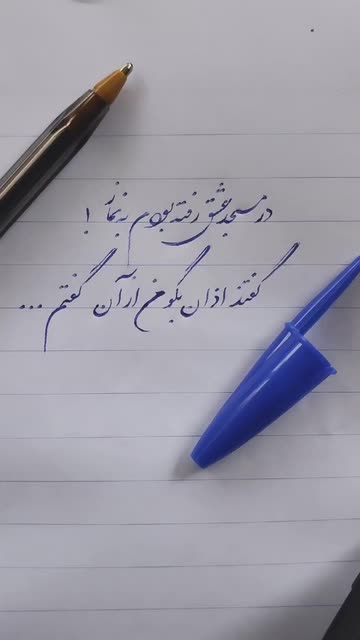 در مسجد عشق رفته بودم به نماز !
گفتند اذان بگو من از آن گفتم ...